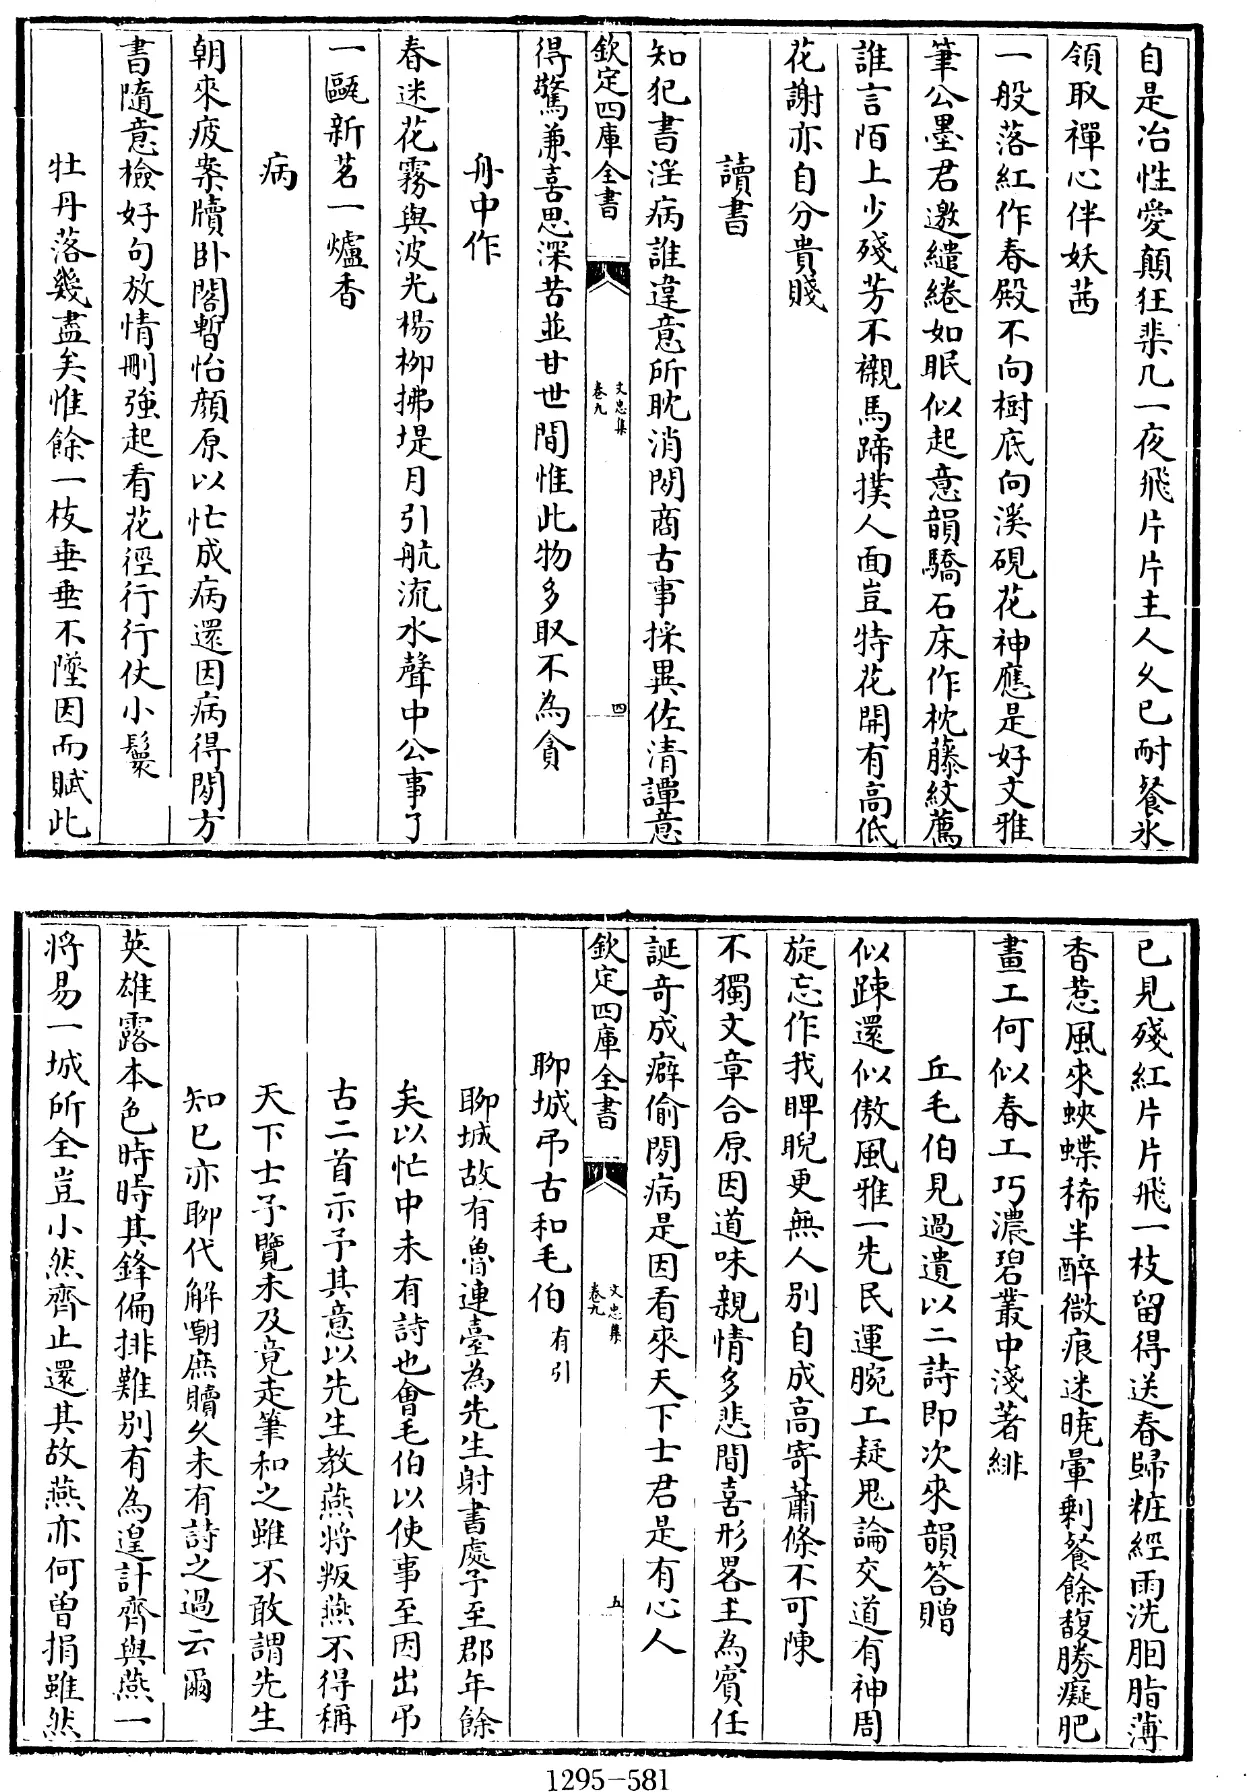 自是冶性愛顛狂棐几一夜飛片片主人久已耐餐氷
領取禪心伴妖茜
一般落紅作春殿不向樹底向溪硯花神應是好文雅
筆公墨君邀繾綣如眠似起意韻驕石床作枕藤紋薦
誰言陌上少殘芳不襯馬蹄撲人面豈特花開有高低
花謝亦自分貴賤
讀書
知犯書淫病誰違意所耽消閒商古事採異佐清譚意
欽定四庫全書
文忠集
卷九
四
得驚兼喜思深苦並甘世間惟此物多取不為貪
舟中作
春迷花霧與波光楊柳拂堤月引航流水聲中公事了
一甌新茗一爐香
病
朝來疲案牘卧閣暫怡顔原以忙成病還因病得閒方
書隨意檢好句放情刪強起看花徑行行仗小鬟
牡丹落幾盡矣惟餘一枝垂垂不墜因而賦此
已見殘紅片片飛一枝留得送春歸粧經雨洗胭脂薄
香惹風來蛺蝶稀半醉微痕迷曉暈剩餐餘馥勝癡肥
畫工何似春工巧濃碧叢中淺著緋
丘毛伯見過遺以二詩即次來韻答贈
似踈還似傲風雅一先民運腕工疑鬼論交道有神周
旋忘作我睥睨更無人別自成高寄蕭條不可陳
不獨文章合原因道味親情多悲間喜形畧主為賓任
誕奇成癖偷閒病是因看來天下士君是有心人
欽定四庫全書
文忠集
卷九
五
聊城弔古和毛伯有引
聊城故有魯連臺為先生射書處予至郡年餘
矣以忙中未有詩也會毛伯以使事至因出弔
古二首示予其意以先生教燕將叛燕不得稱
天下士予覽未及竟走筆和之雖不敢謂先生
知已亦聊代解嘲庶贖久未有詩之過云爾
英雄露本色時時其鋒偏排難別有為遑計齊與燕一
將易一城所全豈小然齊止還其故燕亦何曾捐雖然
1295-581